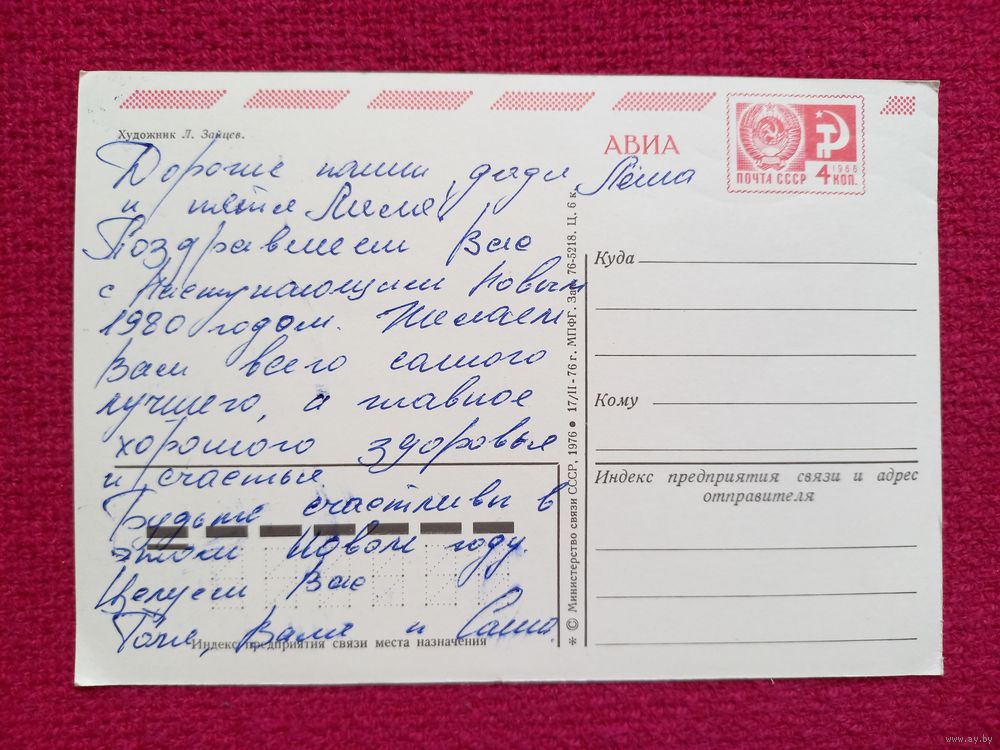 Художник Л. Зайцев.
АВИА
ПОЧТА СССР
1966
4 КОП.
Дорогие наши, дядя Лёша
и тётя Люся,
Поздравляем Вас
с Наступающим Новым
1980 годом. Желаем
Вам всего самого
лучшего, а главное
хорошого здоровья
и счастья
Будьте счастливы в
этом Новом году.
Целуем Вас
Толя, Валя и Саша.
Индекс предприятия связи места назначения
* © Министерство связи СССР, 1976 • 17/II-76 г. МПФГ. Зак. 76-5218. Ц. 6 к.
Куда
Кому
Индекс предприятия связи и адрес
отправителя
www.ay.by